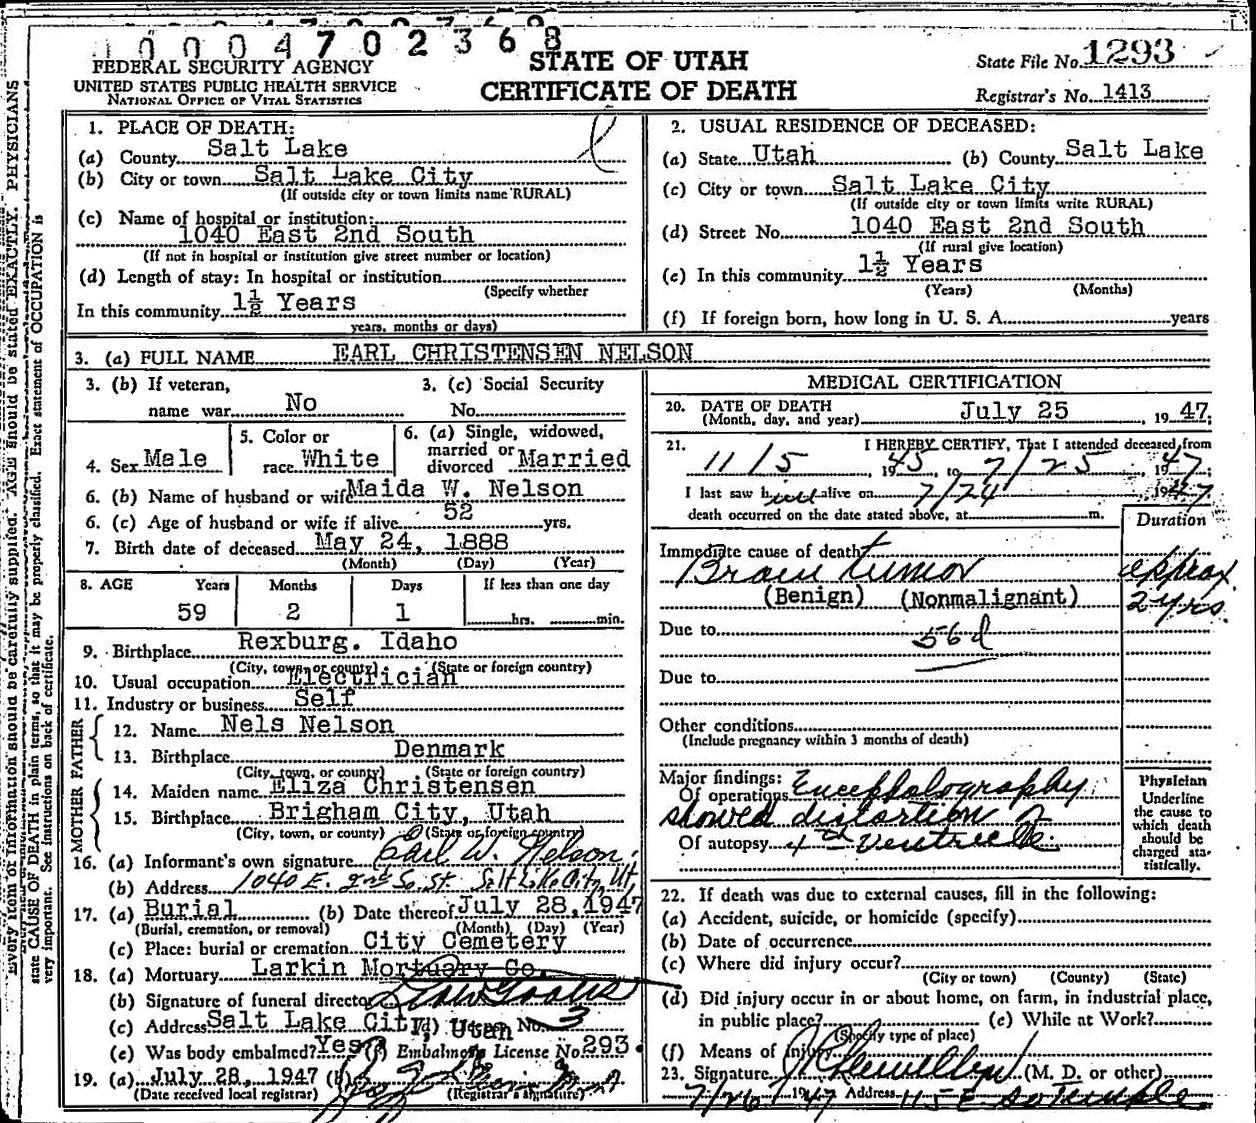 0004702368
FEDERAL SECURITY AGENCY
UNITED STATES PUBLIC HEALTH SERVICE
NATIONAL OFFICE OF VITAL STATISTICS
STATE OF UTAH
CERTIFICATE OF DEATH
State File No. 1293
Registrar's No. 1413
1. PLACE OF DEATH:
(a) County Salt Lake
(b) City or town Salt Lake City
(If outside city or town limits name RURAL)
(c) Name of hospital or institution:
1040 East 2nd South
(If not in hospital or institution give street number or location)
(d) Length of stay: In hospital or institution
(Specify whether
In this community 1½ Years
years, months or days)
2. USUAL RESIDENCE OF DECEASED:
(a) State Utah (b) County Salt Lake
(c) City or town Salt Lake City
(If outside city or town limits write RURAL)
(d) Street No. 1040 East 2nd South
(If rural give location)
(e) In this community 1½ Years
(Years) (Months)
(f) If foreign born, how long in U. S. A. years
3. (a) FULL NAME EARL CHRISTENSEN NELSON
3. (b) If veteran,
name war No
3. (c) Social Security
No.
4. Sex Male
5. Color or
race White
6. (a) Single, widowed,
married or
divorced Married
6. (b) Name of husband or wife Maida W. Nelson
6. (c) Age of husband or wife if alive 52 yrs.
7. Birth date of deceased May 24, 1888
(Month) (Day) (Year)
8. AGE Years Months Days If less than one day
59 2 1 hrs. min.
9. Birthplace Rexburg. Idaho
(City, town, or county) (State or foreign country)
10. Usual occupation Electrician
11. Industry or business Self
FATHER
12. Name Nels Nelson
13. Birthplace Denmark
(City, town, or county) (State or foreign country)
MOTHER
14. Maiden name Eliza Christensen
15. Birthplace Brigham City, Utah
(City, town, or county) (State or foreign country)
16. (a) Informant's own signature Earl W. Nelson.
(b) Address 1040 E. 2nd So. St. Salt Lke City, Ut,
17. (a) Burial (b) Date thereof July 28, 1947
(Burial, cremation, or removal) (Month) (Day) (Year)
(c) Place: burial or cremation City Cemetery
18. (a) Mortuary Larkin Mortuary Co.
(b) Signature of funeral director
(c) Address Salt Lake City, Utah No. 3
(e) Was body embalmed? Yes (f) Embalmer's License No. 293.
19. (a) July 28, 1947 (b)
(Date received local registrar) (Registrar's signature)
MEDICAL CERTIFICATION
20. DATE OF DEATH
(Month, day, and year) July 25, 1947;
21. I HEREBY CERTIFY, That I attended deceased from
11/5 1945, to 7/25 1947;
I last saw him alive on 7/24 1947
death occurred on the date stated above, at m.
Duration
Immediate cause of death
Brain tumor approx
(Benign) (Nonmalignant) 2 yrs.
Due to 56d
Due to
Other conditions
(Include pregnancy within 3 months of death)
Major findings:
Of operations Encephalography
showed distortion of
Of autopsy 4th ventricle.
Physician
Underline
the cause to
which death
should be
charged sta-
tistically.
22. If death was due to external causes, fill in the following:
(a) Accident, suicide, or homicide (specify)
(b) Date of occurrence
(c) Where did injury occur?
(City or town) (County) (State)
(d) Did injury occur in or about home, on farm, in industrial place,
in public place? (e) While at Work?
(Specify type of place)
(f) Means of injury
23. Signature (M. D. or other)
7/26 1947 Address 115 E So Temple.
Every item of information should be carefully supplied. AGE should be stated EXACTLY. PHYSICIANS
state CAUSE OF DEATH in plain terms, so that it may be properly classified. Exact statement of OCCUPATION is
very important. See instructions on back of certificate.